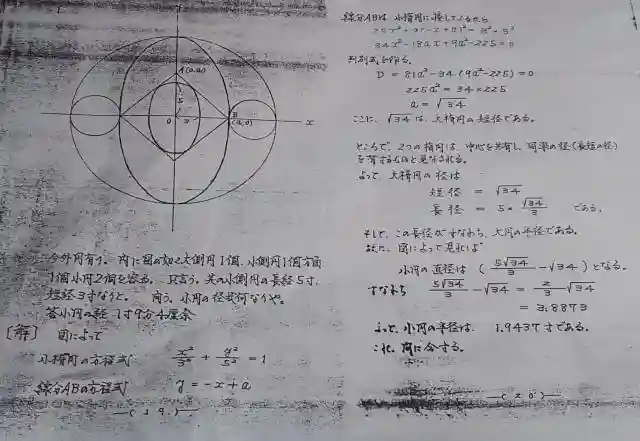 y
A(0,a)
5
O
3
B
(a,0)
x
今外円有り。内に図の如く大側円1個、小側円1個方面
1個小円2個を容る。只言う。其の小側円の長径5寸、
短径3寸なりと。問う。小円の径幾何なりや。
答小円の径 1寸9分4厘余
[解] 図によって
小楕円の方程式 x²/3² + y²/5² = 1
線分ABの方程式 y = -x + a
—( 19 )—
線分ABは 小楕円に接しているから
34x² - 18ax + 9a² - 225 = 0
判別式を作る。
D = 81a² - 34(9a² - 225) = 0
225a² = 34 × 225
a = √34
ここに、√34 は、大楕円の短径である。
ところで、2つの楕円は、中心を共有し、同率の径(長短の径)
を有するものと見做される。
よって 大楕円の径は
短径 = √34
長径 = 5 × √34/3 である。
そして、この長径がすなわち、大円の半径である。
また、図によって見れば
小円の直径は (5√34/3 - √34) となる。
すなわち 5√34/3 - √34 = 2/3 √34
= 3.8873
よって、小円の半径は 1.9437寸である。
これ、問に合する。
—( 20 )—